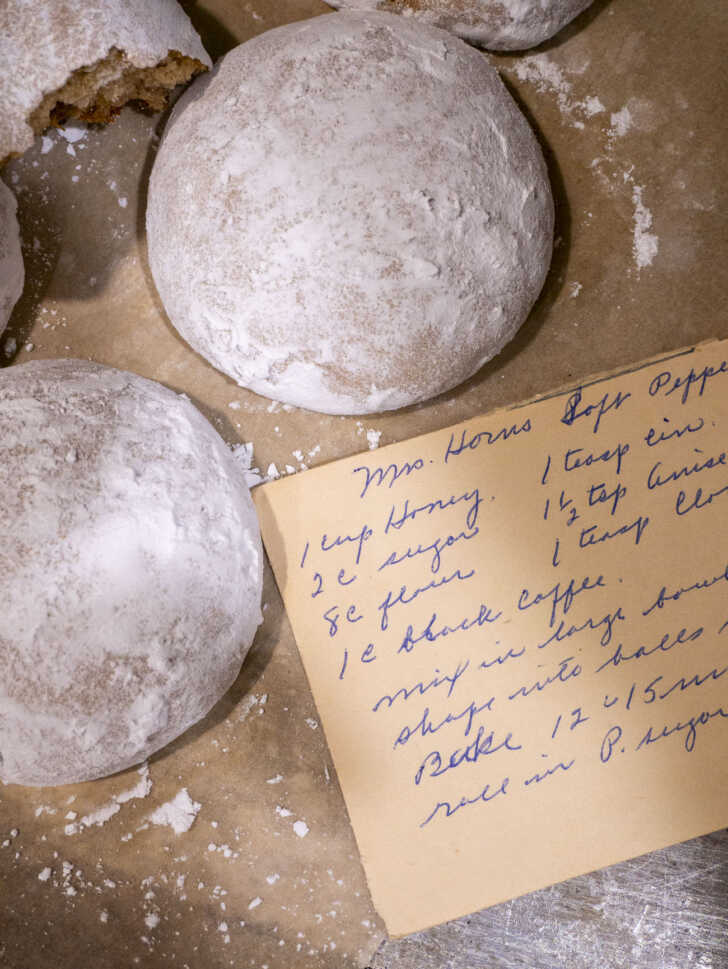 Mrs. Horns Soft Peppe
1 cup Honey. 1 teasp cin.
2 c sugar 1 1/2 tsp Anise
8c flour 1 teasp Clo
1 c black coffee.
mix in large bowl
shape into balls
Bake 12-15 m
roll in P. sugar